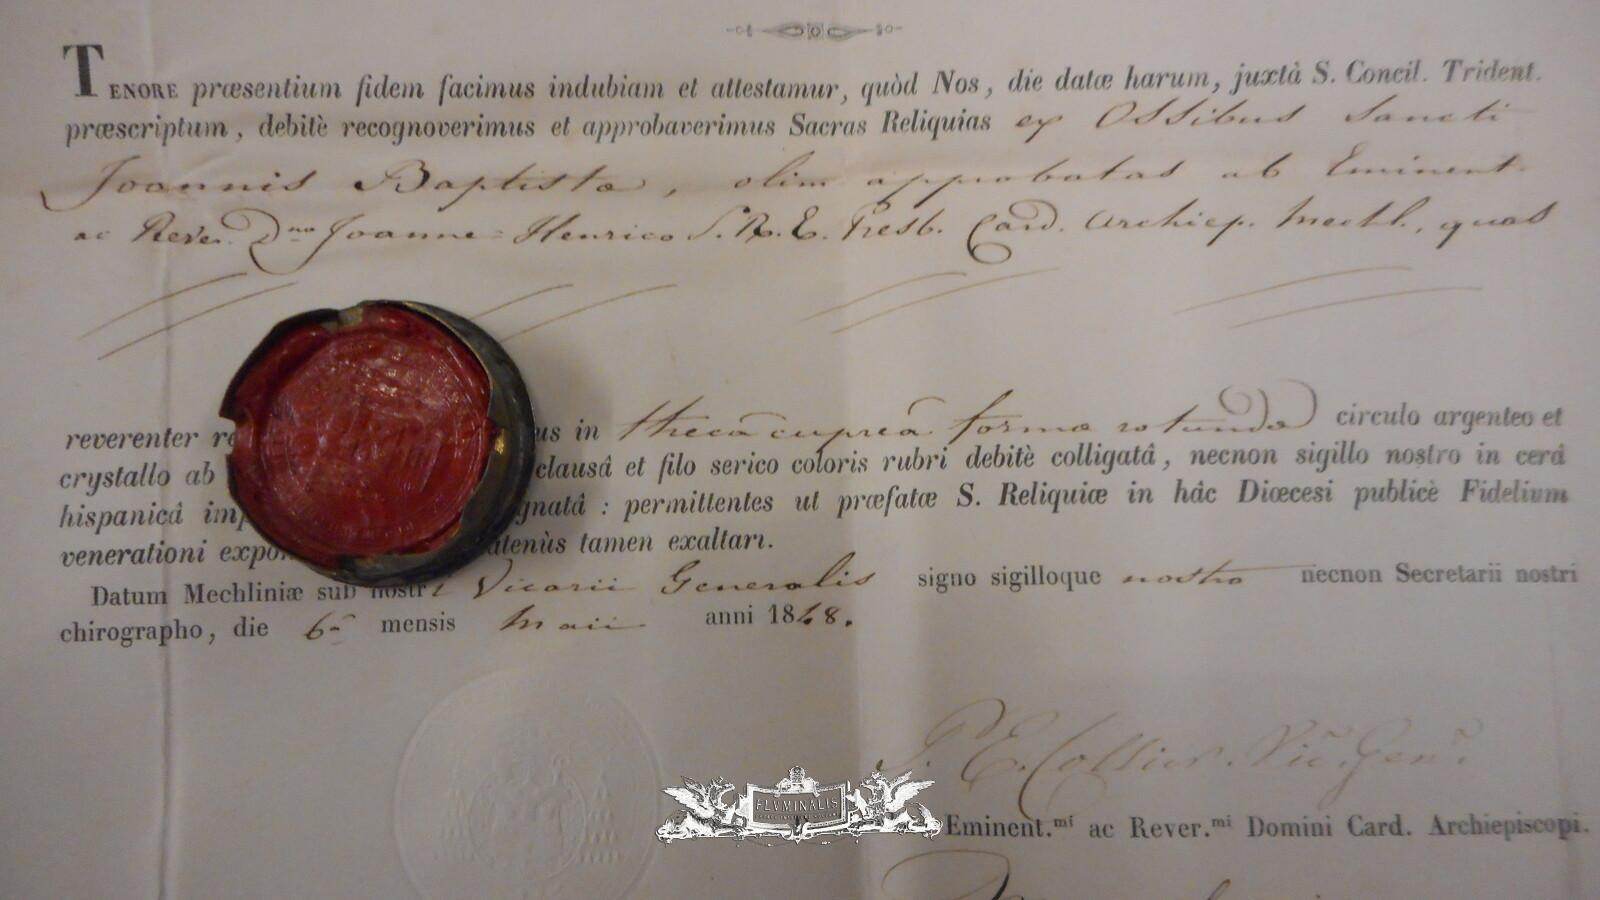 TENORE præsentium fidem facimus indubiam et attestamur, quòd Nos, die datæ harum, juxtà S. Concil. Trident.
præscriptum, debitè recognoverimus et approbaverimus Sacras Reliquias ex Ossibus Sancti
Joannis Baptistæ, olim approbatas ab Eminent.
ac Rever. Dno Joanne-Henrico S.R.E. Presb. Card. Archiep. Mechl., quas
reverenter in thecâ cupreâ formæ rotundæ circulo argenteo et
crystallo ab clausâ et filo serico coloris rubri debitè colligatâ, necnon sigillo nostro in cerâ
hispanicâ : permittentes ut præfatæ S. Reliquiæ in hâc Diœcesi publicè Fidelium
venerationi tamen exaltari.
Datum Mechliniæ sub nostri Vicarii Generalis signo sigilloque nostro necnon Secretarii nostri
chirographo, die 6â mensis Maii anni 1848.
Vic. Gen.
Eminent.mi ac Rever.mi Domini Card. Archiepiscopi.
FLVMINALIS